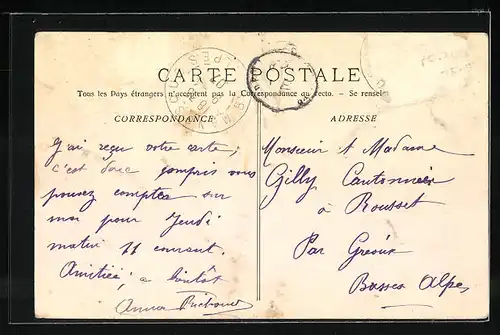 CARTE POSTALE
Tous les Pays étrangers n'acceptent pas la Correspondance au recto. — Se renseigner
CORRESPONDANCE
J'ai reçu votre carte;
c'est donc compris vous
pouvez compter sur
moi pour Jeudi
matin 11 courant.
Amitiés; a bientôt
Anna
ADRESSE
Monsieur & Madame
Gilly Cantonnier
à Rousset
Par Gréoux
Basses Alpes